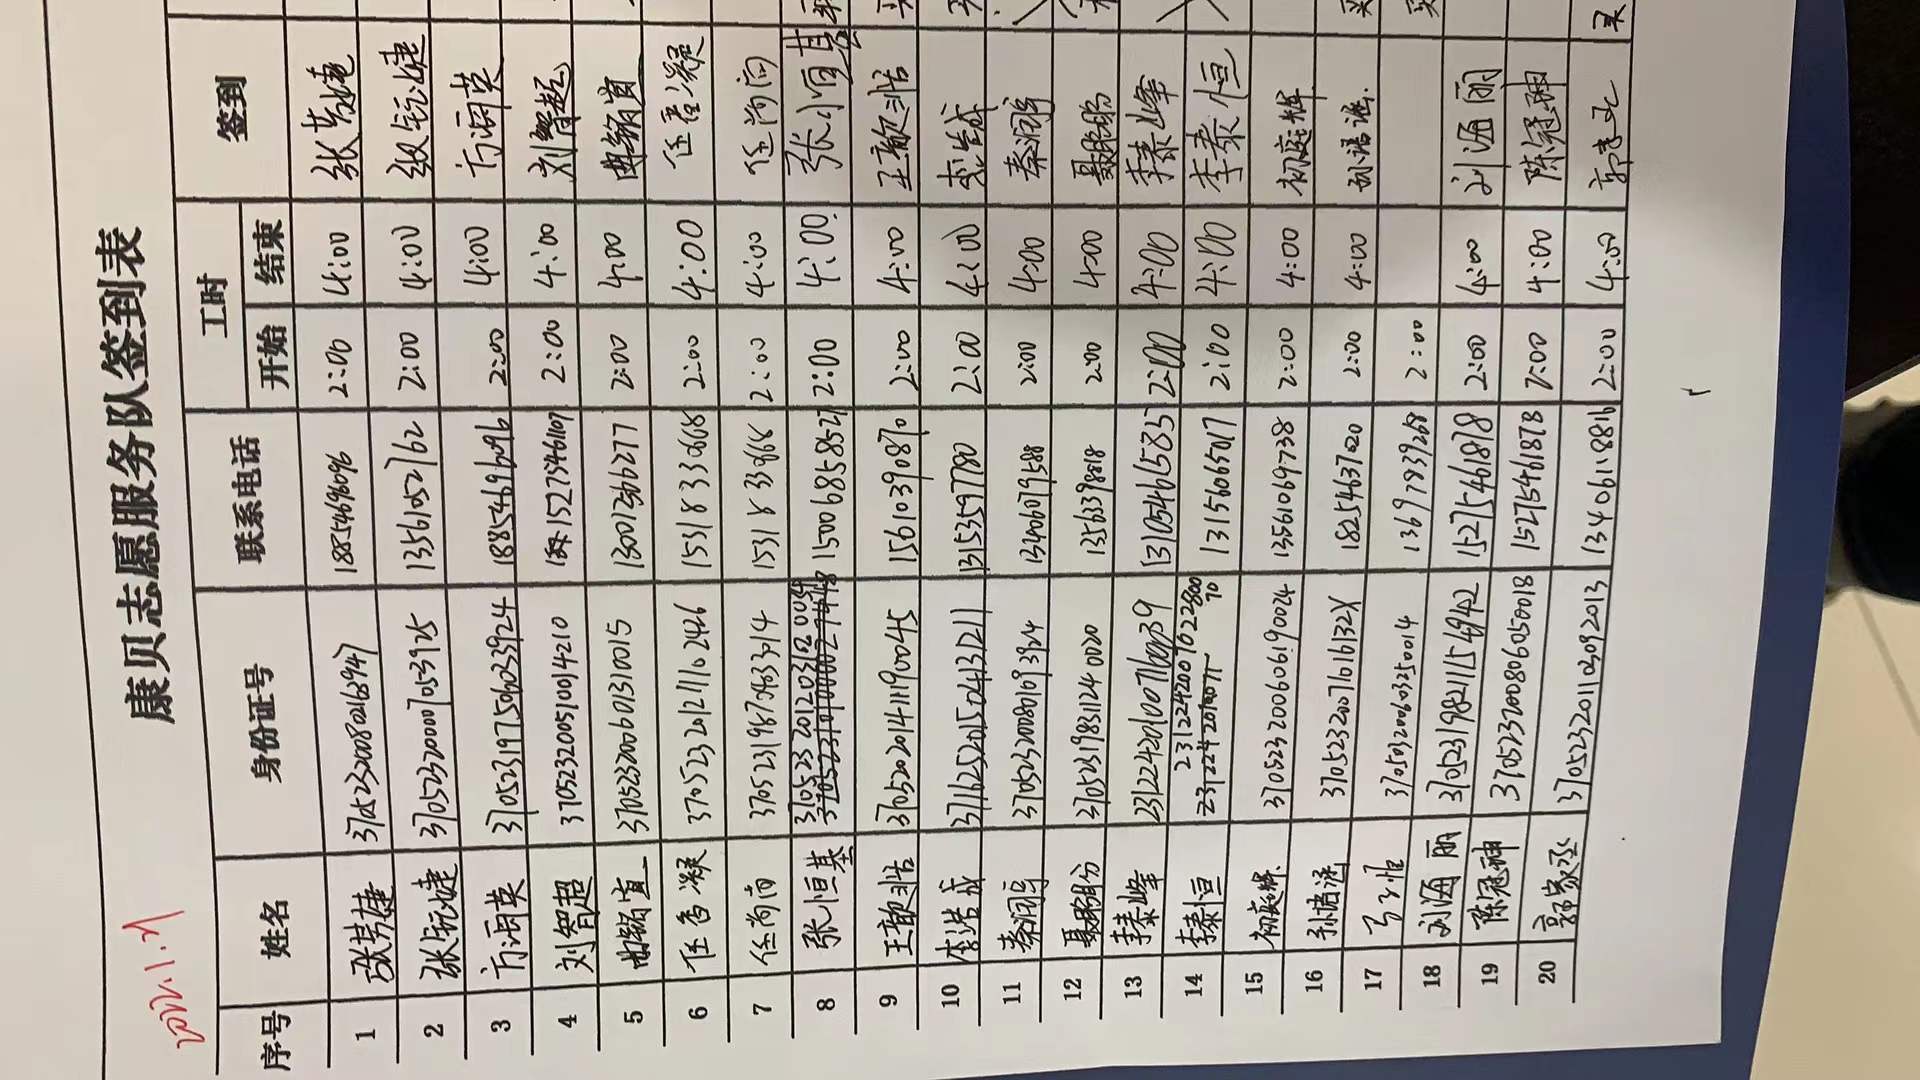 2022.1.21
康贝志愿服务队签到表
序号 姓名 身份证号 联系电话 工时 签到
开始 结束
1 张芳婕 18854696096 2:00 4:00 张芳婕
2 张钰婕 13561052762 2:00 4:00 张钰婕
3 方海英 370523197506023924 18854696096 2:00 4:00 方海英
4 刘智超 370523200510014210 15275461107 2:00 4:00 刘智超
5 曲铭宣 370523200601310015 13001256277 2:00 4:00 曲铭宣
6 任香凝 370523201211102426 15318333668 2:00 4:00 任香凝
7 任尚同 2:00 4:00 任尚同
8 张恒基 370523201203120054 15006858527 2:00 4:00 张恒基
9 王歆浩 370520201411190045 15610390870 2:00 4:00 王歆浩
10 李浩成 371625201504131211 13153597780 2:00 4:00 李浩成
11 秦润 370523200801093924 13406079588 2:00 4:00 秦润
12 聂 370521198311240020 13563399818 2:00 4:00 聂
13 李泰峰 13105465835 2:00 4:00 李泰峰
14 李泰恒 13156065017 2:00 4:00 李泰恒
15 初庭辉 370523200606190024 13561069738 2:00 4:00 初庭辉
16 孙语涵 37052320071016132X 18254637020 2:00 4:00 孙语涵
17 370503200603250014 13697839268 2:00
18 刘海丽 370523198211154942 15275461878 2:00 4:00 刘海丽
19 陈冠翀 370523200806050018 15275461878 2:00 4:00 陈冠翀
20 郭家丞 370523201103092013 13406118816 2:00 4:00